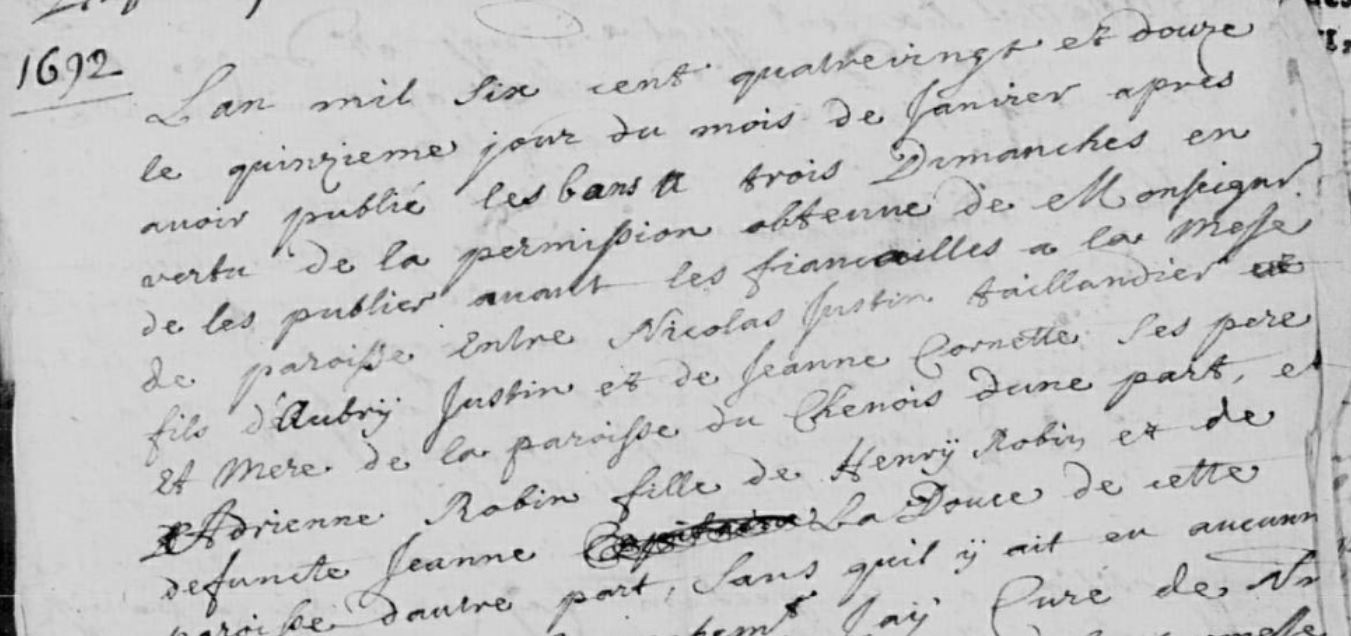 1692
Lan mil Six cent quatrevingt et douze
le quinzieme jour du mois de Janvier apres
avoir publié les bans a trois Dimanches en
vertu de la permission obtenue de Monseignr.
de les publier avant les fiancailles a la Messe
de paroisse Entre Nicolas Justin taillandier
fils d'Aubrÿ Justin et de Jeanne Cornette Ses pere
Et Mere de la paroisse du Chenois dune part, et
Adrienne Robin fille de Henrÿ Robin et de
defuncte Jeanne La Douce de cette
paroisse dautre part, Sans quil ÿ ait eu aucunn
Jaÿ Curé de
messe